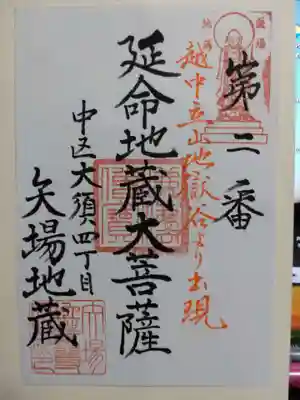 第二番
越中立山地獄谷より出現
延命地蔵大菩薩
中区大須四丁目
矢場地蔵